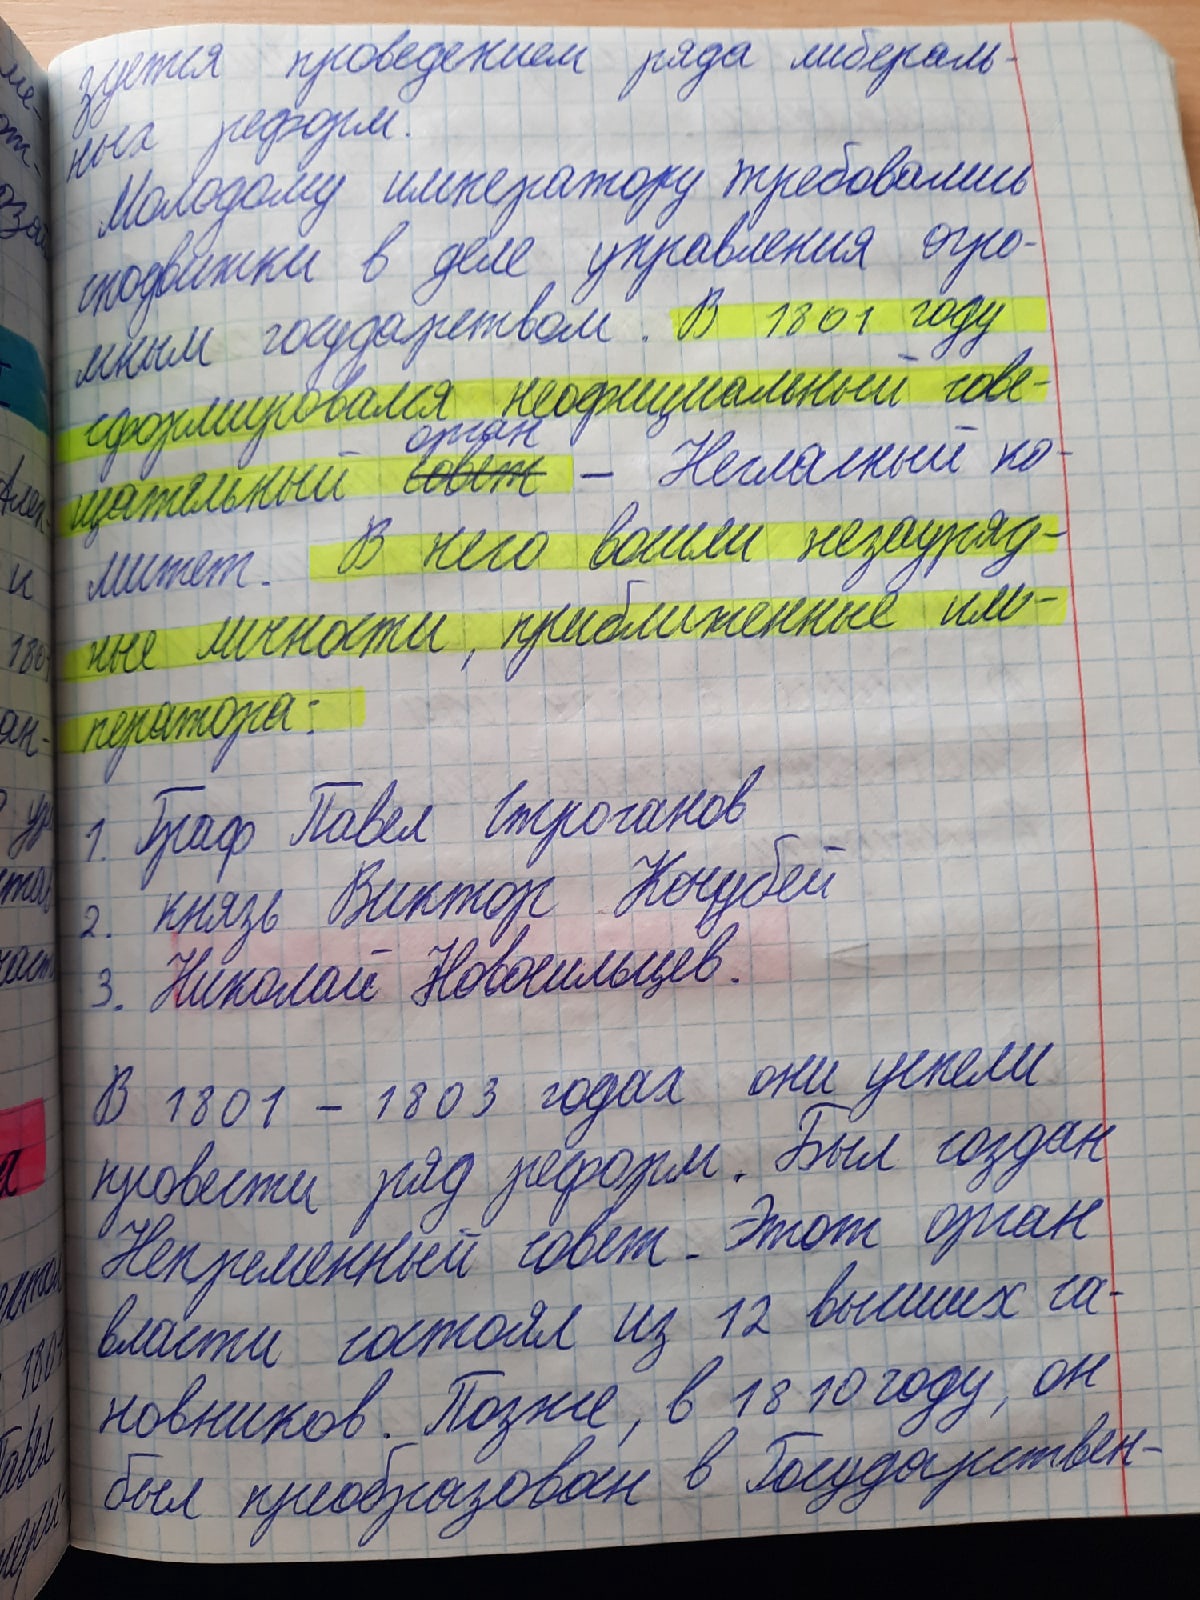 зуется проведением ряда либераль-
ных реформ.
Молодому императору требовались
сподвижки в деле управления огро-
мным государством. В 1801 году
сформировался неофициальный сове-
орган
щательный совет – Негласный ко-
митет. В него вошли незауряд-
ные личности, приближенные им-
ператора:
1. Граф Павел Строганов
2. князь Виктор Кочубей
3. Николай Новосильцев.
В 1801 – 1803 годах они успели
провести ряд реформ. Был создан
Непременный совет. Этот орган
власти состоял из 12 высших са-
новников. Позже, в 1810 году, он
был преобразован в Государствен-